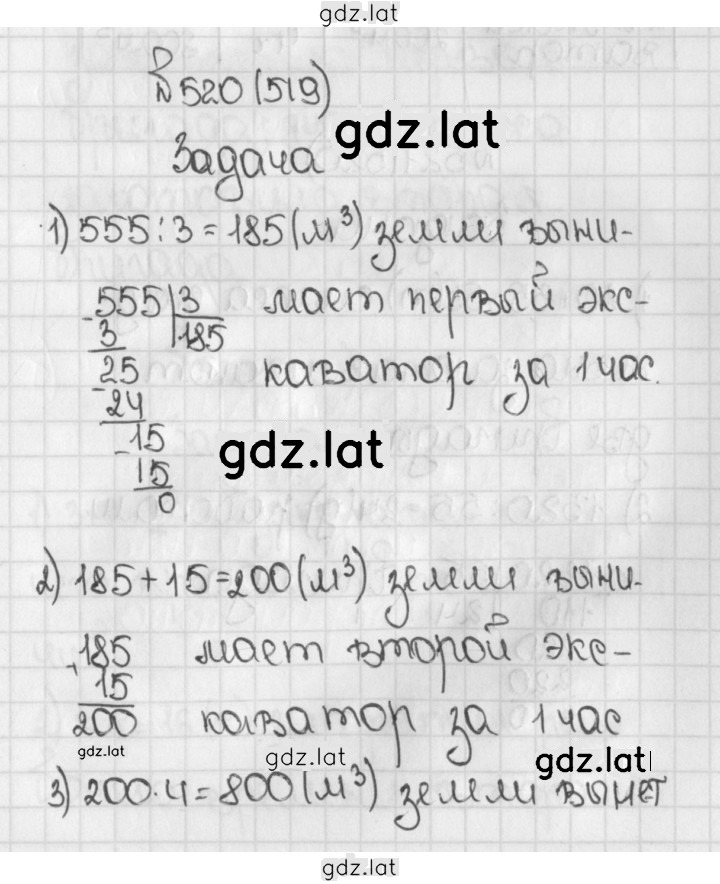 gdz.lat
№520(519)
gdz.lat
Задача
1) 555:3=185(м³) земли выни-
555|3 мает первый экс-
- 3 185
25 каватор за 1 час.
- 24
gdz.lat
- 15
15
0
2) 185+15=200(м³) земли выни-
+185 мает второй экс-
15
200 каватор за 1 час
gdz.lat
gdz.lat
gdz.lat
3) 200·4=800(м³) земли вынет
gdz.lat